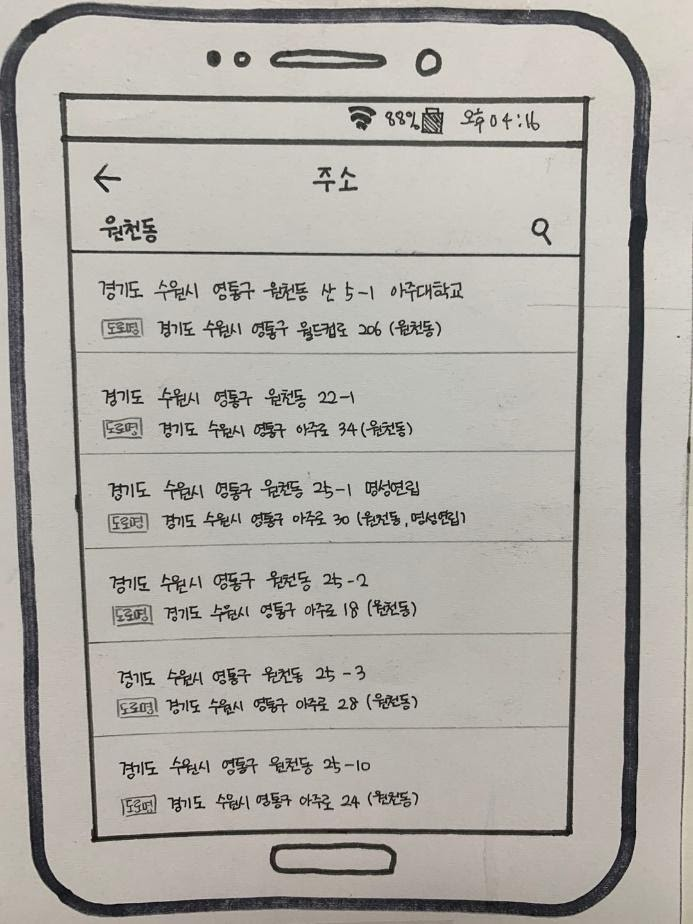 88% 오후 04:16
주소
원천동
경기도 수원시 영통구 원천동 산 5-1 아주대학교
도로명 경기도 수원시 영통구 월드컵로 206 (원천동)
경기도 수원시 영통구 원천동 22-1
도로명 경기도 수원시 영통구 아주로 34 (원천동)
경기도 수원시 영통구 원천동 25-1 명성연립
도로명 경기도 수원시 영통구 아주로 30 (원천동, 명성연립)
경기도 수원시 영통구 원천동 25-2
도로명 경기도 수원시 영통구 아주로 18 (원천동)
경기도 수원시 영통구 원천동 25-3
도로명 경기도 수원시 영통구 아주로 28 (원천동)
경기도 수원시 영통구 원천동 25-10
도로명 경기도 수원시 영통구 아주로 24 (원천동)